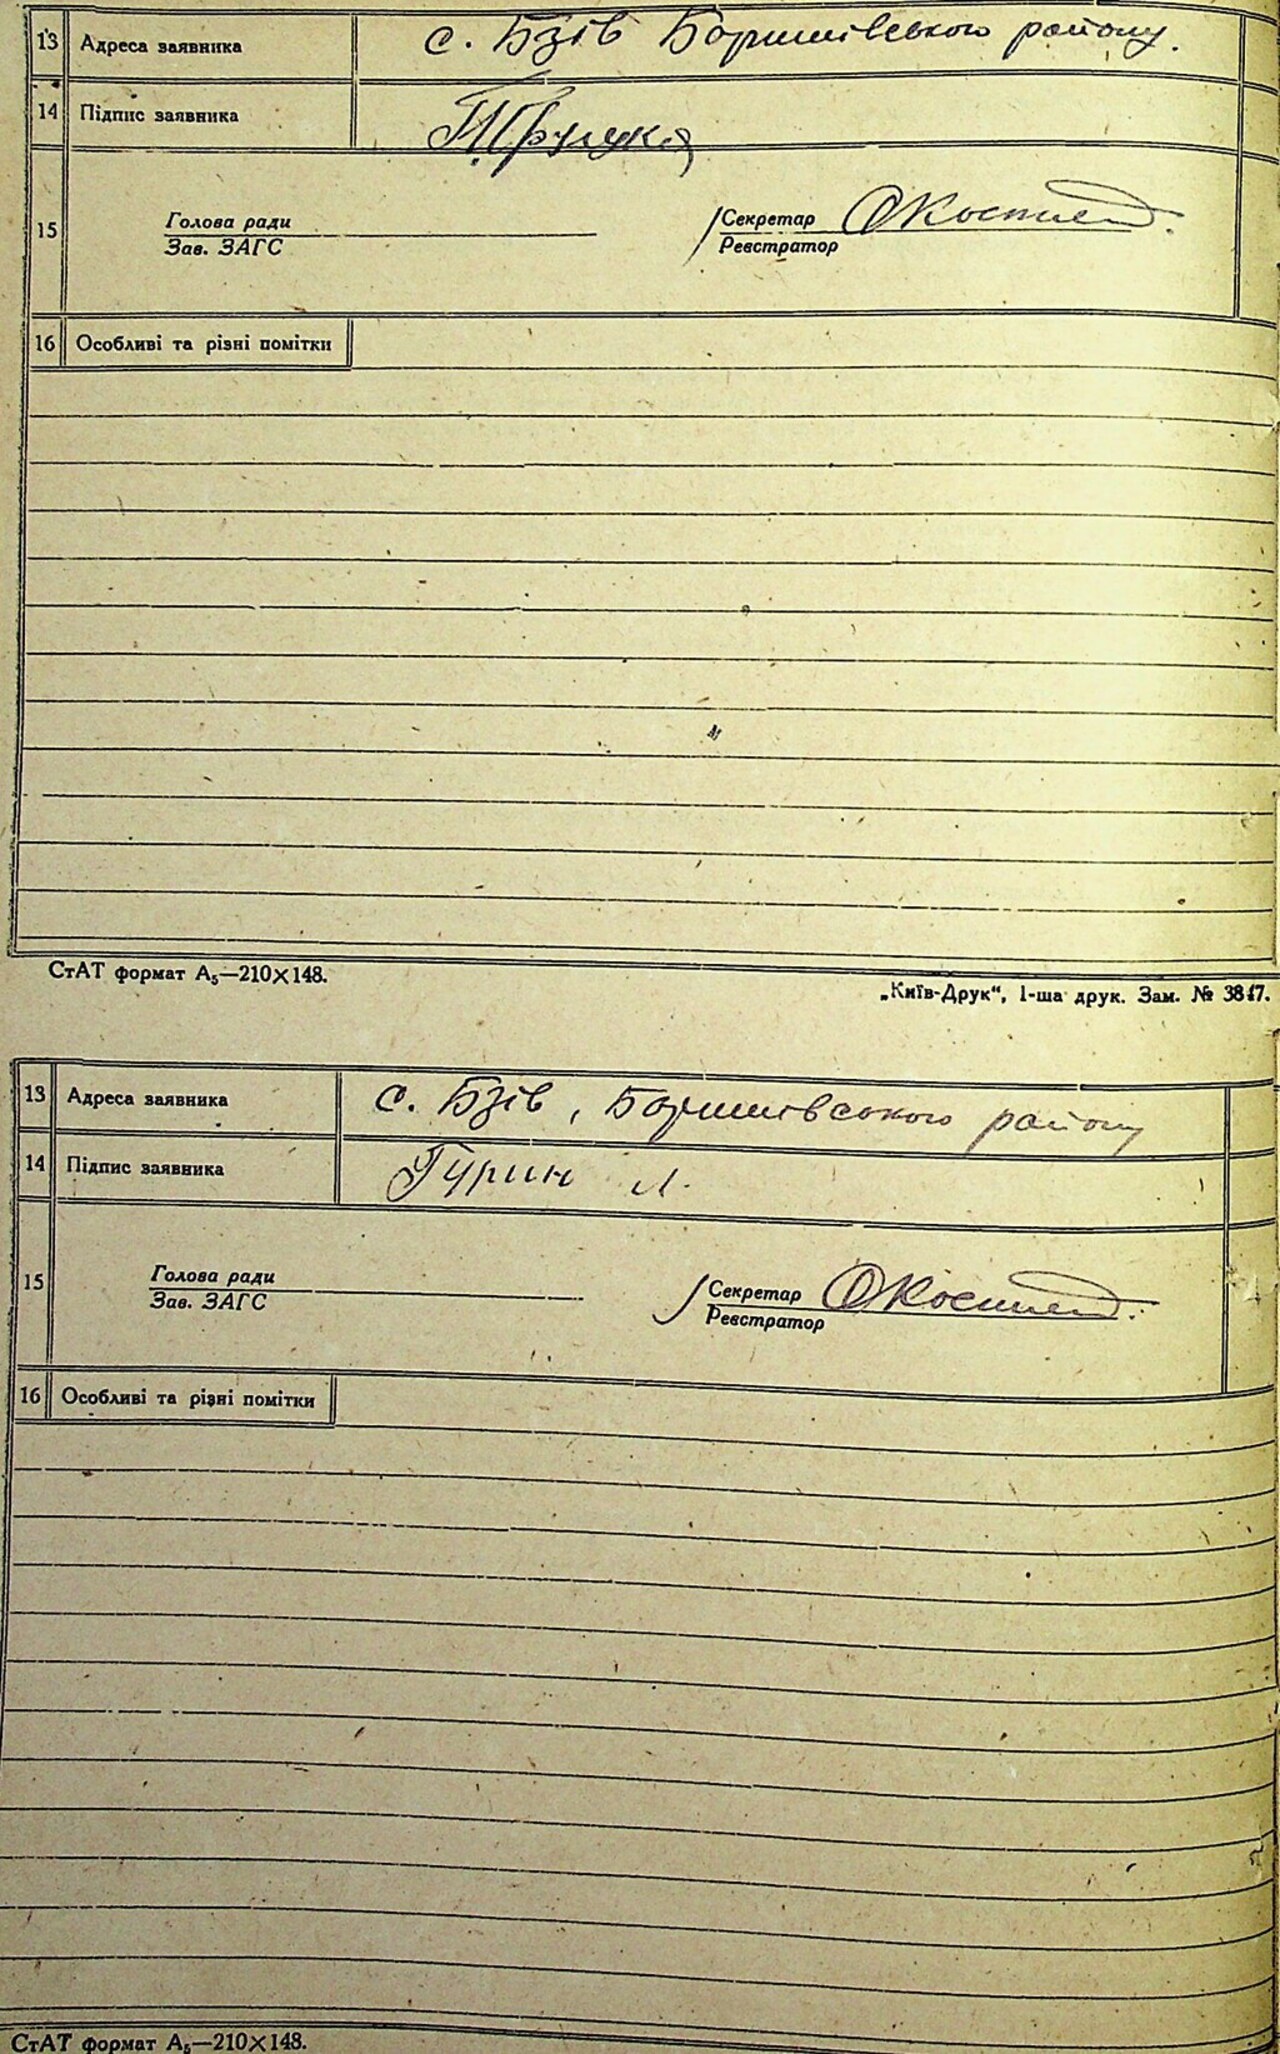 13 Адреса заявника с. Бзів Боришівського району.
14 Підпис заявника
15 Голова ради Секретар
Зав. ЗАГС Реєстратор
16 Особливі та різні помітки
СтАТ формат А₅—210×148.
„Київ-Друк“, 1-ша друк. Зам. № 3847.
13 Адреса заявника с. Бзів, Боришівського району
14 Підпис заявника Гурин Л.
15 Голова ради Секретар
Зав. ЗАГС Реєстратор
16 Особливі та різні помітки
СтАТ формат А₅—210×148.